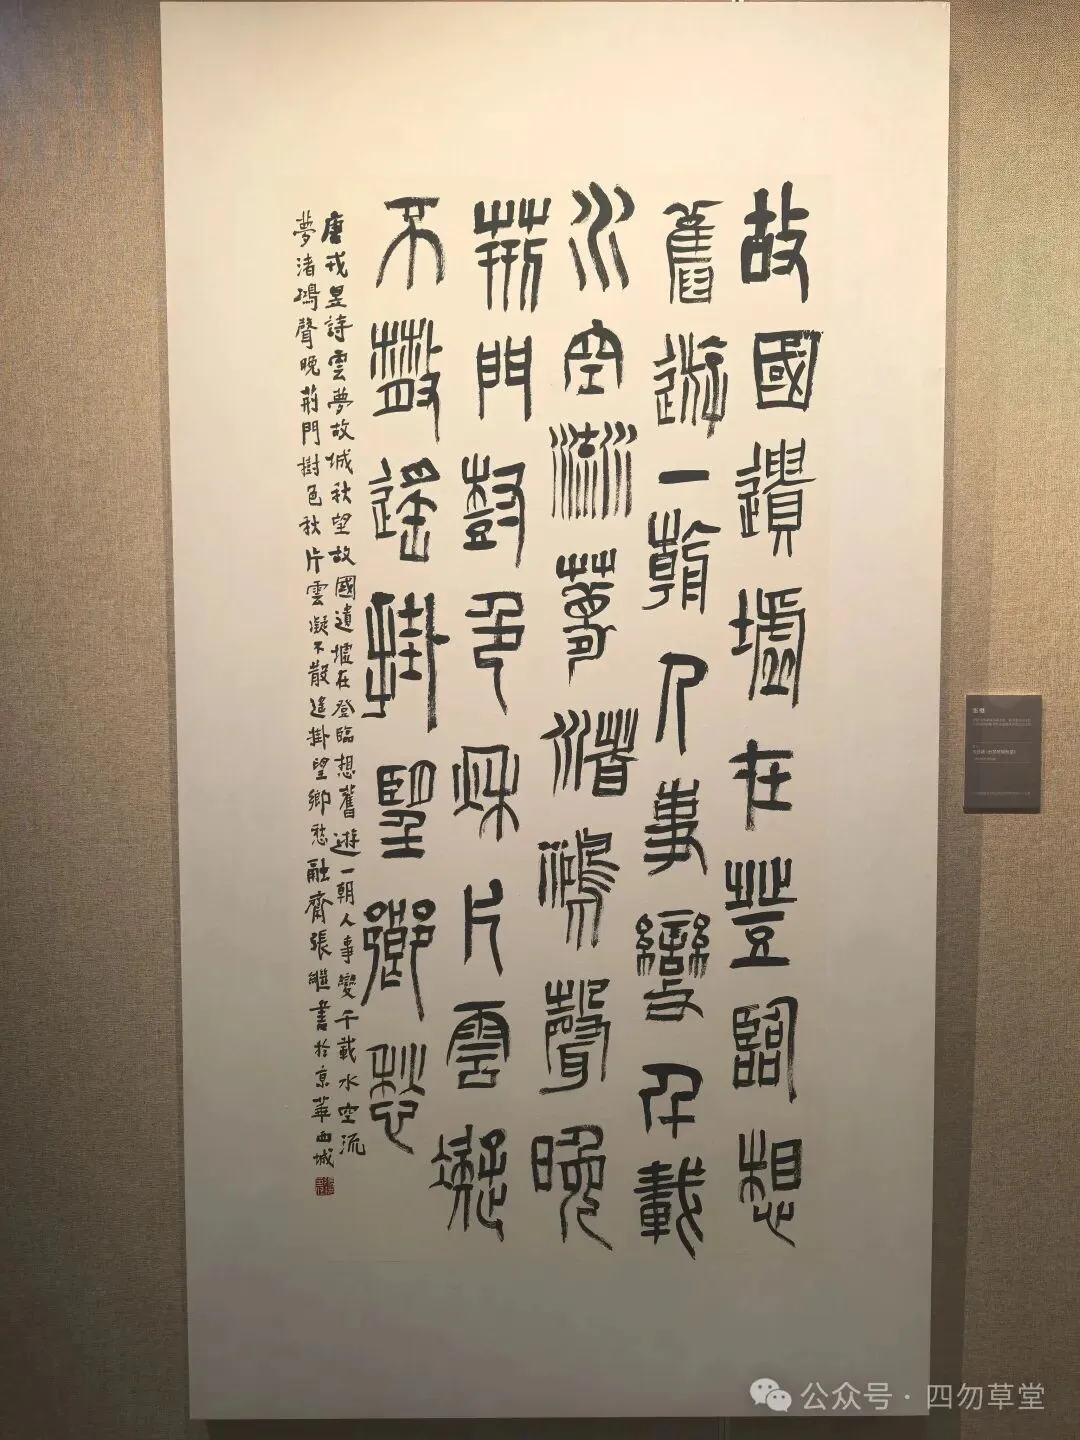 故國遺墟在登臨想
舊遊一朝人事變千載
水空流夢渚鴻聲晚
荊門樹色秋片雲凝
不散遙掛望鄉愁
唐戎昱詩雲夢故城秋望故國遺墟在登臨想舊遊一朝人事變千載水空流
夢渚鴻聲晚荊門樹色秋片雲凝不散遙掛望鄉愁融齋張繼書於京華西城
张继
公众号·四勿草堂